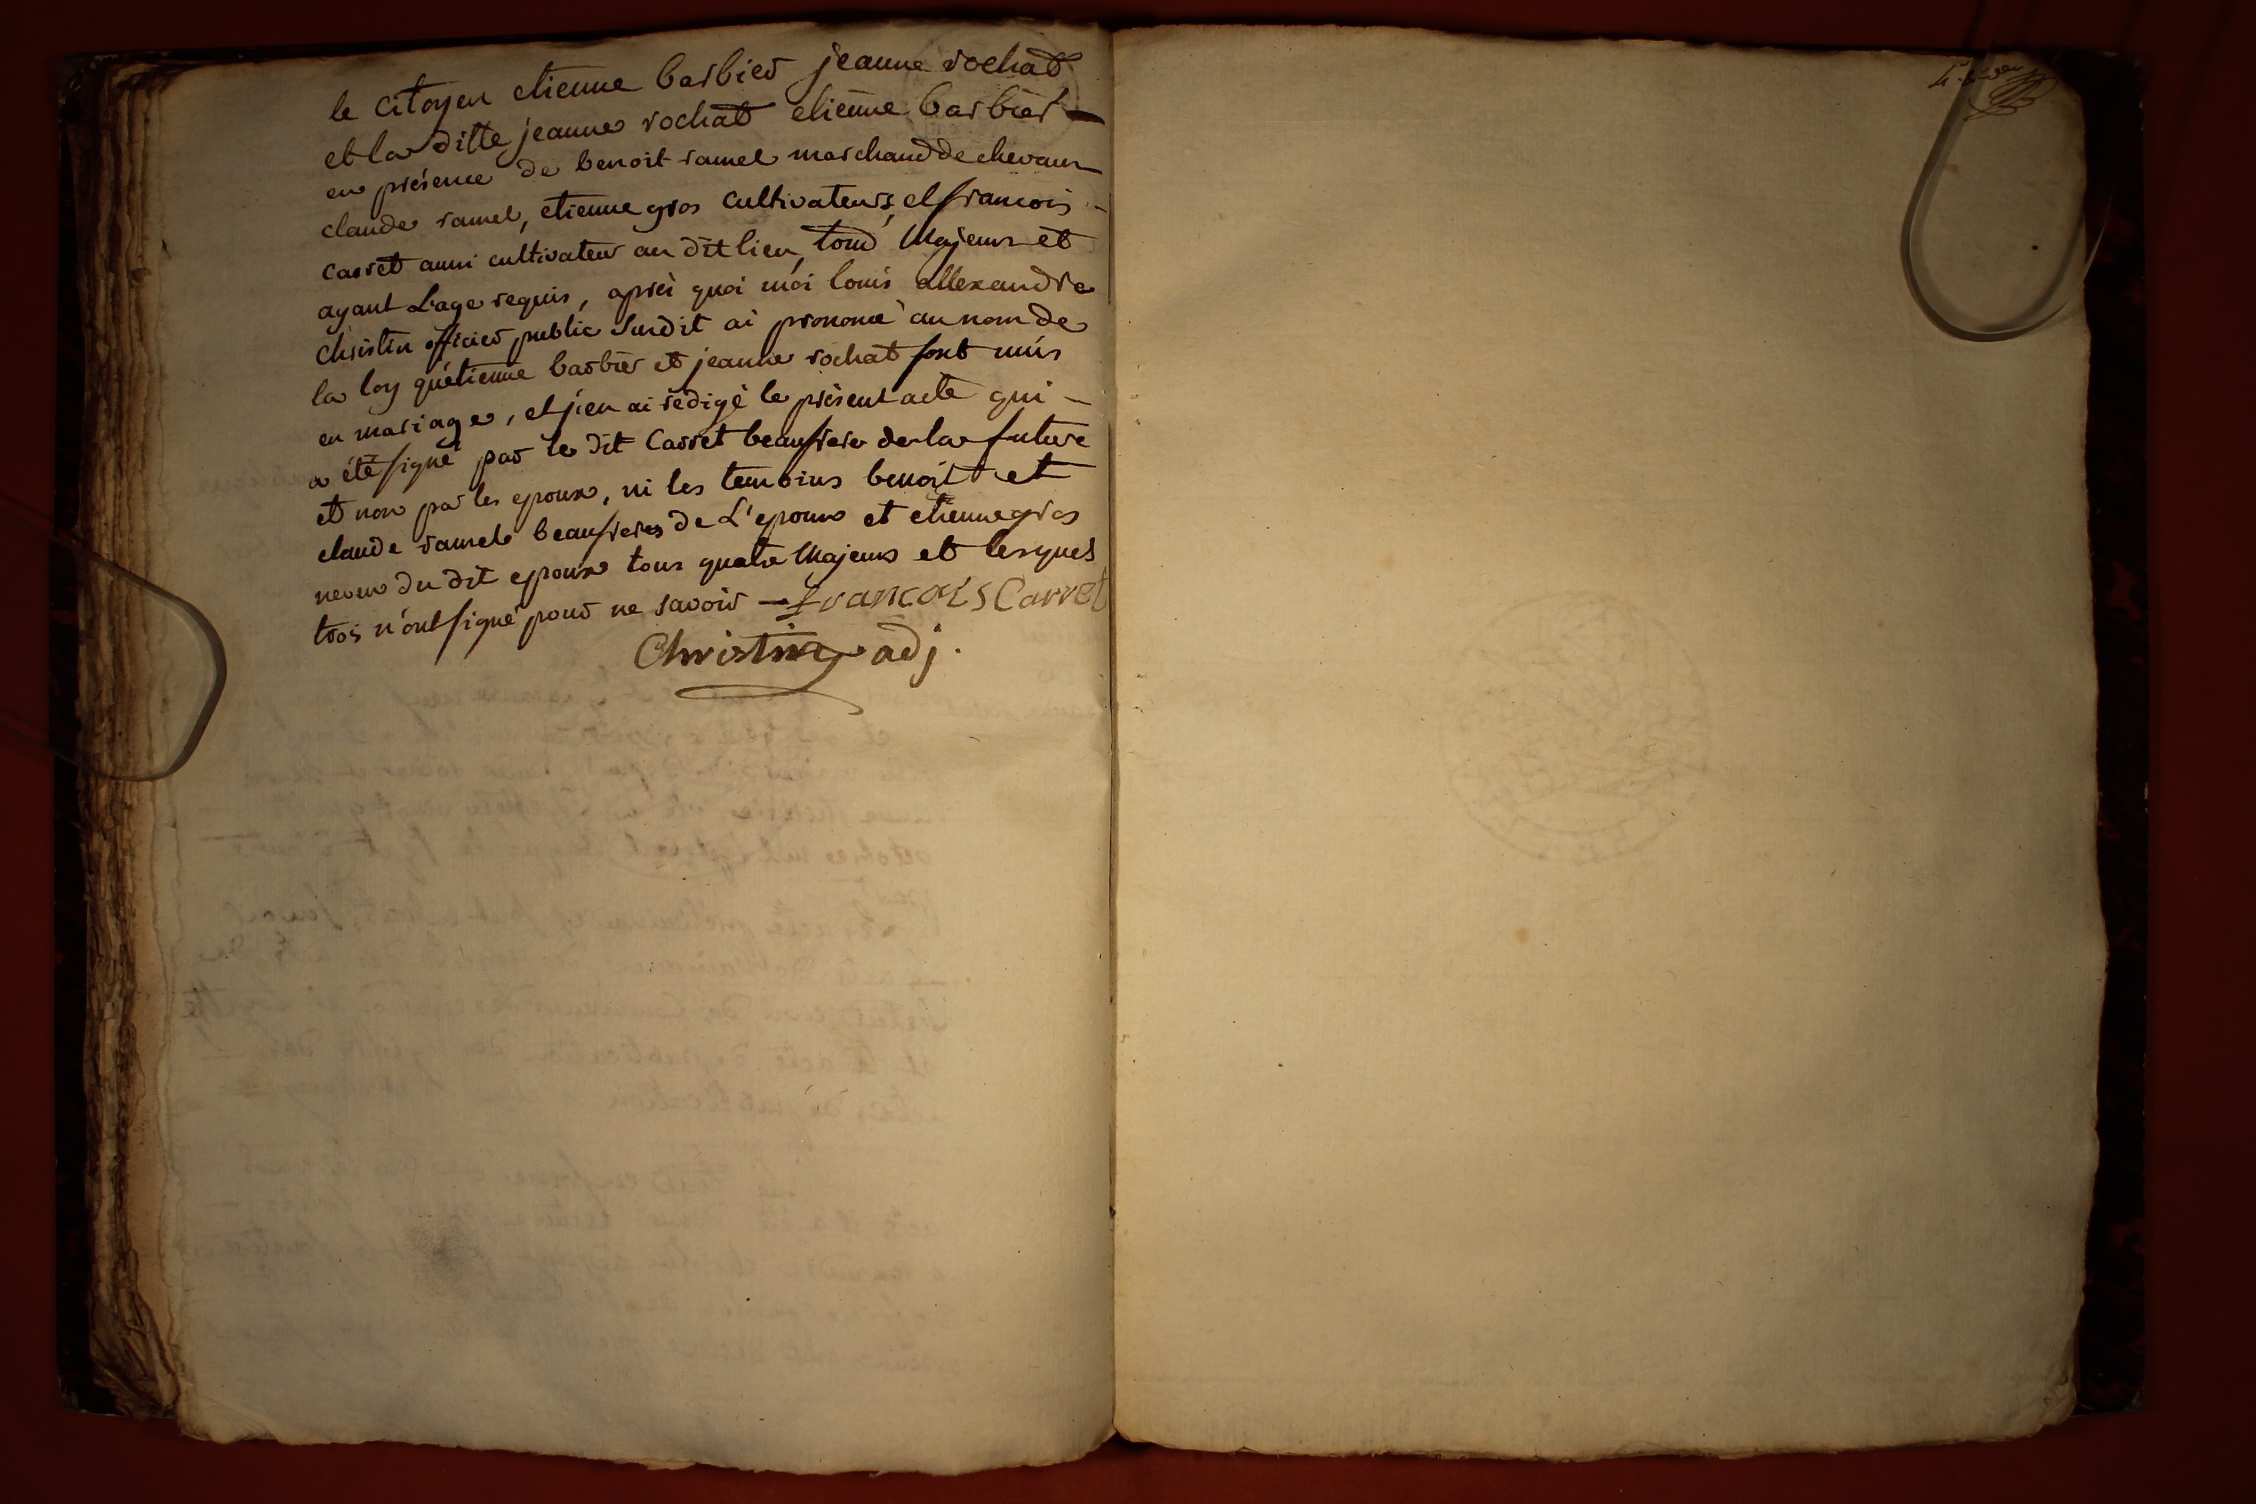 le Citoyen etienne barbier jeanne rochat
et la ditte jeanne rochat etienne barbier
en présence de benoit ramel marchand de chevaux
claude ramel, etienne gros cultivateurs, et francois
Carret aussi cultivateur au dit lieu, tous Majeurs et
ayant L'age requis, après quoi moi louis allexandre
Christin officier public Susdit ai prononcé au nom de
la loy qu'étienne barbier et jeanne rochat sont unis
en mariage, et j'en ai rédigé le présent acte qui
a été signé par le dit Carret beaufrere de la future
et non par les epoux, ni les temoins benoit et
claude ramel beaufreres de L'epoux et etienne gros
neveu du dit epoux tous quatre Majeurs et lesquels
trois n'ont signé pour ne savoir Francois Carret
Christin adj.